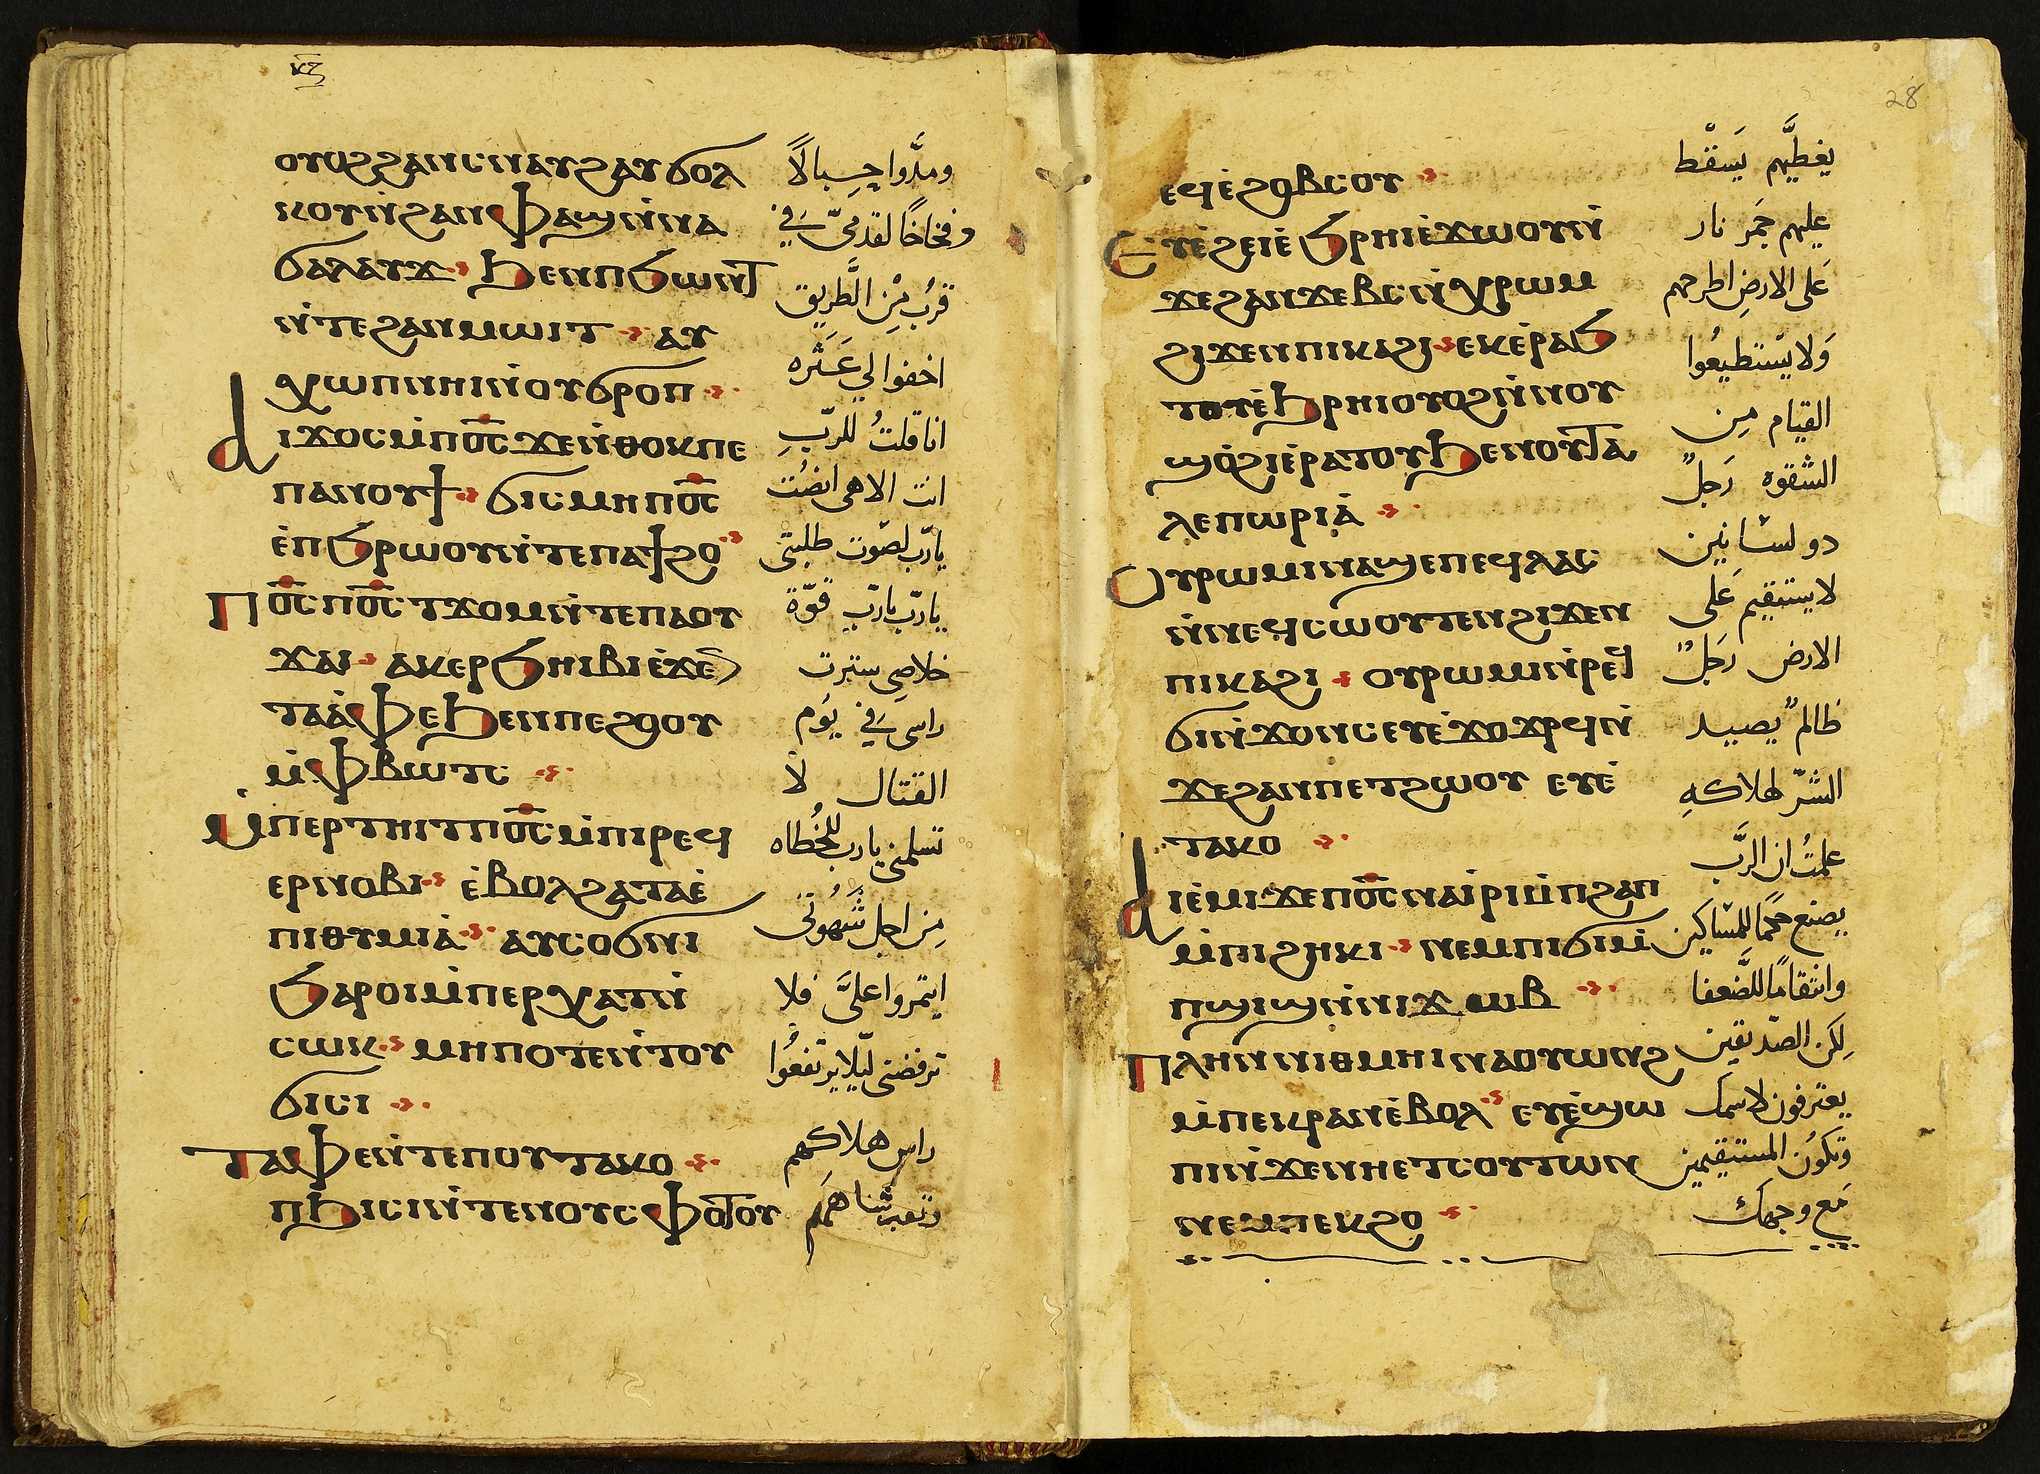 ⲕⲍ
ⲟⲩⲟϩϩⲁⲛⲥⲛⲁⲩϩⲁⲩϭⲟⲗ
ⲕⲟⲩⲛ̀ϩⲁⲛⲫⲁϣⲛ̀ⲛⲁ
ϭⲁⲗⲁⲩϫ ϧⲉⲛⲡϧⲱⲛⲧ
ⲛ̀ⲧⲉϩⲁⲛⲙⲱⲓⲧ ⲁⲩ
ⲭⲱⲡⲛⲏⲓⲛ̀ⲟⲩϭⲣⲟⲡ
ⲁⲓϫⲟⲥⲙ̀ⲡⲟ̅ⲥ̅ϫⲉⲛ̀ⲑⲟⲕⲡⲉ
ⲡⲁⲛⲟⲩϯ ϭⲓⲥⲙⲏⲡⲟ̅ⲥ̅
ⲉ̀ⲡϧⲣⲱⲟⲩⲛ̀ⲧⲉⲡⲁϯϩⲟ
ⲡⲟ̅ⲥ̅ⲡⲟ̅ⲥ̅ⲧϫⲟⲙⲛ̀ⲧⲉⲡⲁⲟⲩ
ϫⲁⲓ ⲁⲕⲉⲣϧⲏⲓⲃⲓⲉ̀ϫⲉⲛ
ⲧⲁⲁ̀ⲫⲉϧⲉⲛⲡⲉϩⲟⲟⲩ
ⲙ̀ⲫⲃⲱⲧⲥ
ⲙ̀ⲡⲉⲣⲧⲏⲓⲧⲡⲟ̅ⲥ̅ⲙ̀ⲡⲓⲣⲉϥ
ⲉⲣⲛⲟⲃⲓ ⲉ̀ⲃⲟⲗϩⲁⲧⲁⲉ̀
ⲡⲓⲑⲩⲙⲓⲁ̀ ⲁⲩⲥⲟϭⲛⲓ
ϧⲁⲣⲟⲓⲙ̀ⲡⲉⲣⲭⲁⲧⲛ̀
ⲥⲱⲕ ⲙⲏⲡⲟⲧⲉⲛ̀ⲧⲟⲩ
ϭⲓⲥⲓ
ⲧⲁⲫⲉⲛ̀ⲧⲉⲡⲟⲩⲧⲁⲕⲟ
ⲡϧⲓⲥⲓⲛ̀ⲧⲉⲛⲟⲩⲥⲫⲟⲧⲟⲩ
ومدّوا حِبالاً
وفخاخًا لقدميّ في
قرُب مِن الطَّريق
اخفوا لي عَثَره
انا قلتُ للربّ
انت الاهى انصُت
يارّب لصّوت طلبتى
يارّب يارّب قوّة
خلاصى سترت
راسى في يَوم
القتال لا
تسلمنى يارب للخُطاه
مِن اجل شَهْوتى
ايتمروا علىَّ فلا
ترفضنى ليّلا يرتفعُوا
راس هلاكهم
وتعب شفاههَم
28
ⲉϥⲉ̀ϩⲟⲃⲥⲟⲩ
ⲉⲩⲉ̀ϩⲉⲓⲉ̀ϧⲣⲏⲓⲉ̀ϫⲱⲟⲩⲛ̀
ϫⲉϩⲁⲛϫⲉⲃⲥⲛ̀ⲭⲣⲱⲙ
ϩⲓϫⲉⲛⲡⲓⲕⲁϩⲓ ⲉⲕⲉ̀ⲣⲁϧ
ⲧⲟⲩⲉ̀ϧⲣⲏⲓⲟⲩⲟϩⲛ̀ⲛⲟⲩ
ϣⲟ̀ϩⲓⲉ̀ⲣⲁⲧⲟⲩϧⲉⲛⲟⲩⲧⲁ
ⲗⲉⲡⲱⲣⲓⲁ̀
ⲟⲩⲣⲱⲙⲓⲛⲁϣⲉⲡⲉϥⲗⲁⲥ
ⲛ̀ⲛⲉϥⲥⲱⲟⲩⲧⲉⲛϩⲓϫⲉⲛ
ⲡⲓⲕⲁϩⲓ ⲟⲩⲣⲱⲙⲓⲛ̀ⲣⲉϥ
ϭⲓⲛ̀ϫⲟⲛⲥⲉⲩⲉ̀ϫⲟⲣϫϥⲛ̀
ϫⲉϩⲁⲛⲡⲉⲧϩⲱⲟⲩ ⲉⲩⲉ̀
ⲧⲁⲕⲟ
ⲁⲓⲉ̀ⲙⲓϫⲉⲡⲟ̅ⲥ̅ⲛⲁⲓ̀ⲣⲓⲙ̀ⲡϩⲁⲡ
ⲙ̀ⲡⲓϩⲏⲕⲓ ⲛⲉⲙⲡⲓϭⲓⲙ̀
ⲡϣⲓϣⲛ̀ⲛⲓϫⲱⲃ
ⲡⲗⲏⲛⲛⲓⲑⲙⲏⲓⲛⲁⲟⲩⲱⲛϩ
ⲙ̀ⲡⲉⲕⲣⲁⲛⲉ̀ⲃⲟⲗ ⲉⲩⲉ̀ϣⲱ
ⲡⲓⲛ̀ϫⲉⲛⲏⲉⲧⲥⲟⲩⲧⲱⲛ
ⲛⲉⲙⲡⲉⲕϩⲟ
يغطيَّهم يَسقْط
عليهم جَمر نار
عَلى الارض اطرحهم
وَلا يسْتطيعُوا
القيام مِن
الشقوه رَجلٌ
دو لسَانين
لا يستقيم عَلى
الارض رَجلٌ
ظالمٌ يصيد
الشرّ لهلاكهِ
علمتُ ان الربَّ
يصنع حكمًا للمسَاكين
وانتقامًا للضَّعفا
لِكن الصّديقين
يعترفون لاسمك
وتكوُن المستقيمين
مَع وجهك